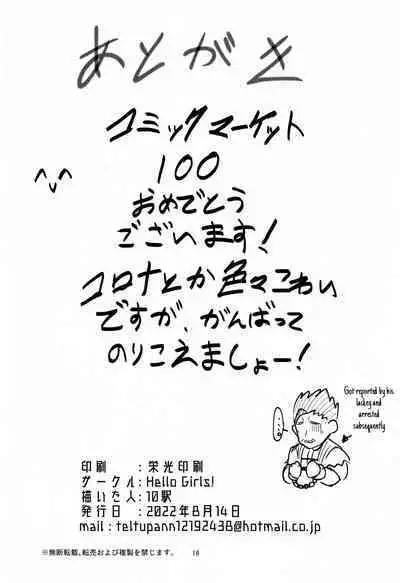 あとがき
コミックマーケット
100
おめでとう
ございます!
コロナとか色々こわい
ですが、がんばって
のりこえましょー!
^v^
Got reported by his
lackey and
arrested
subsequently
印刷 : 栄光印刷
サークル: Hello Girls!
描いた人: 10駅
発行日 : 2022年8月14日
mail : teltupann12192438@hotmail.co.jp
※無断転載、転売および複製を禁じます。
16